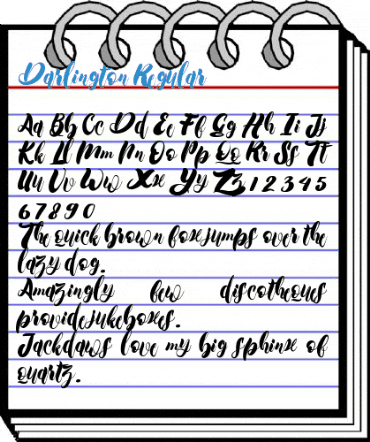 Darlington Regular
Aa Bb Cc Dd Ee Ff Gg Hh Ii Jj
Kk Ll Mm Nn Oo Pp Qq Rr Ss Tt
Uu Vv Ww Xx Yy Zz 1 2 3 4 5
6 7 8 9 0
The quick brown fox jumps over the
lazy dog.
Amazingly few discotheques
provide jukeboxes.
Jackdaws love my big sphinx of
quartz.